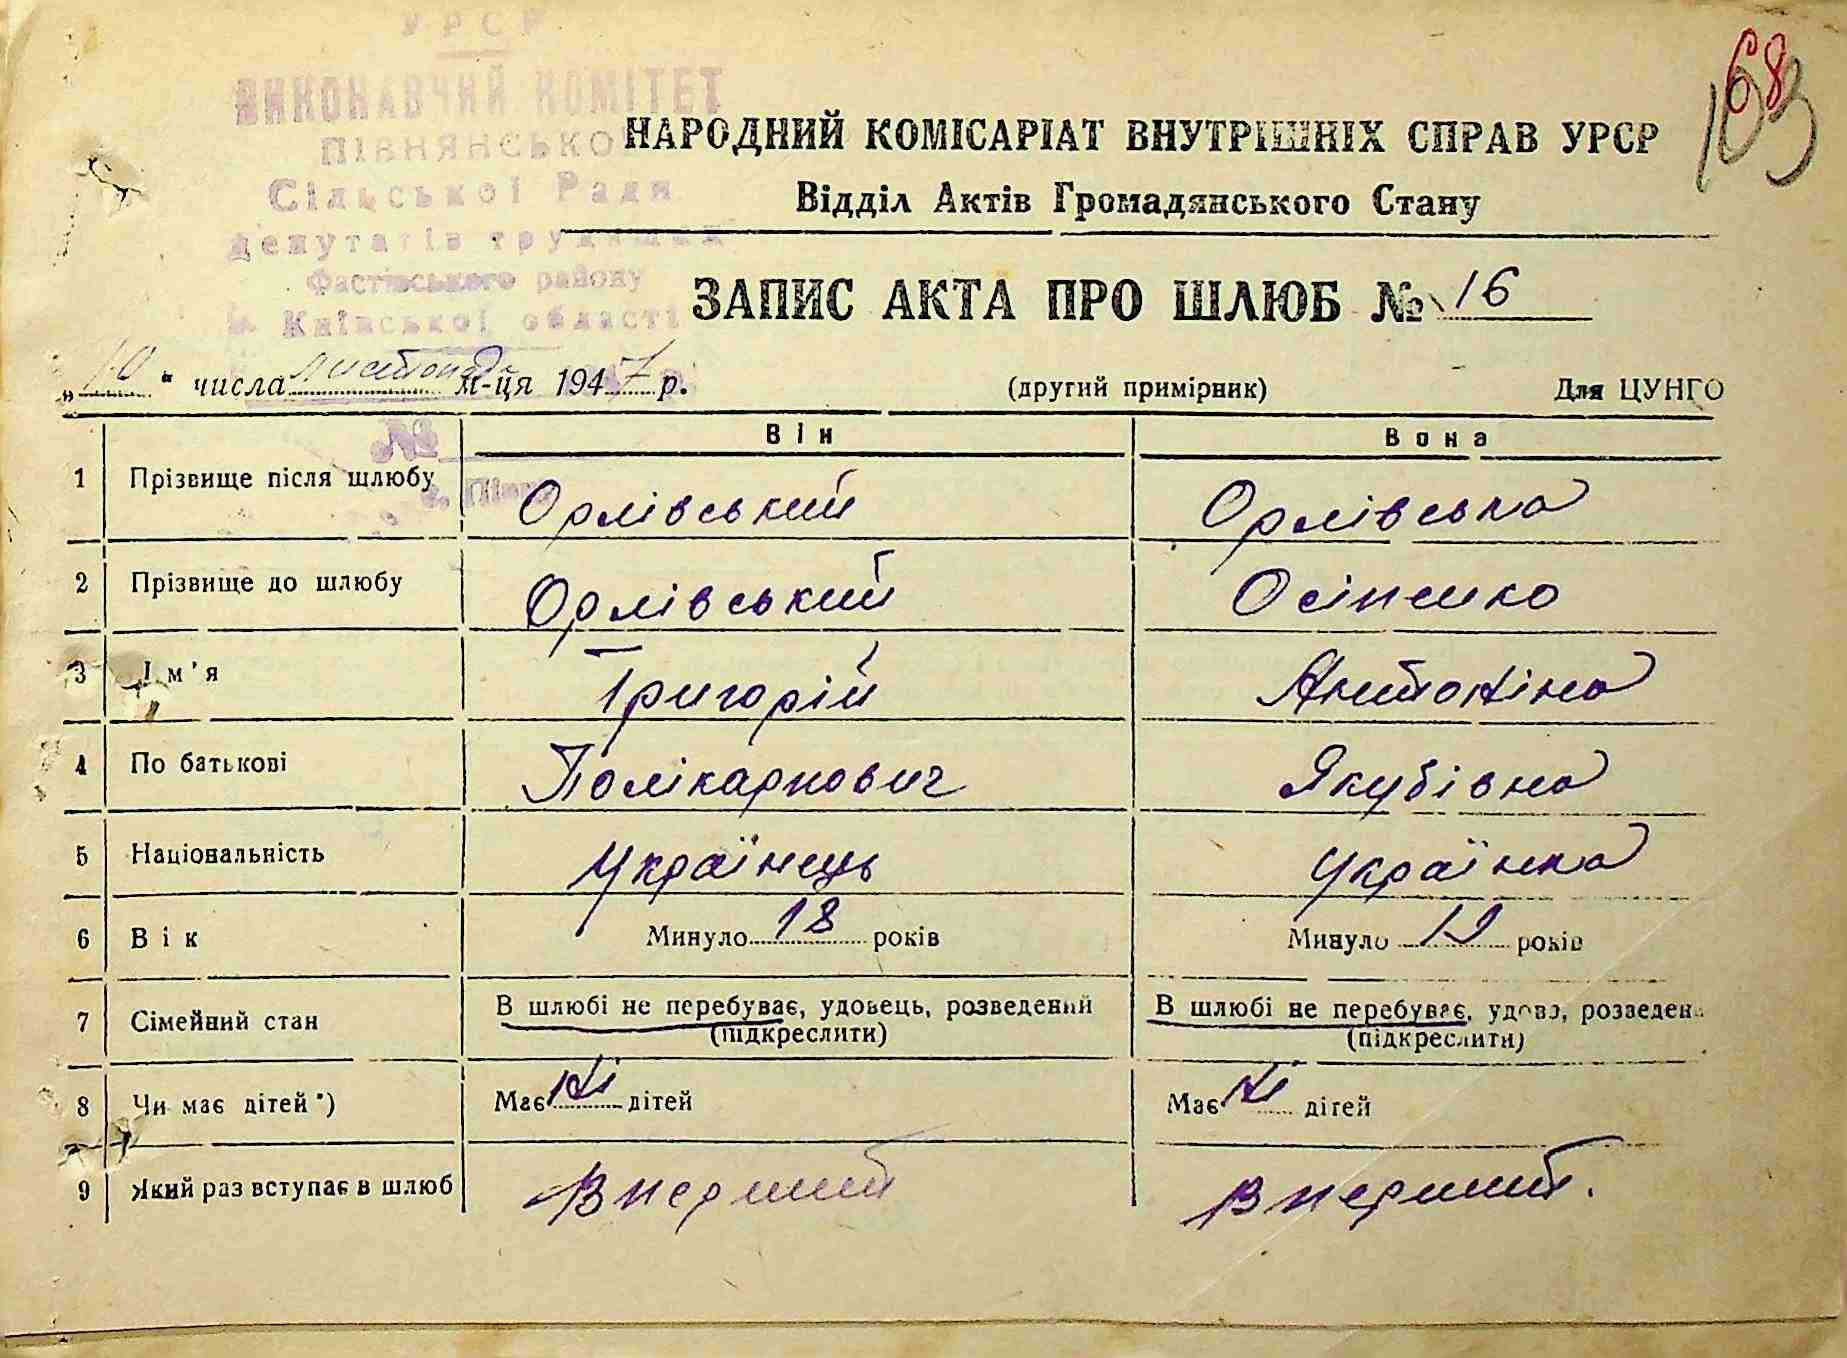 УРСР
ВИКОНАВЧИЙ КОМІТЕТ
ПІВНЯНСЬКО
Сільської Ради
депутатів трудящих
Фастівського району
Київської області
№
68
103
НАРОДНИЙ КОМІСАРІАТ ВНУТРІШНІХ СПРАВ УРСР
Відділ Актів Громадянського Стану
ЗАПИС АКТА ПРО ШЛЮБ № 16
„10“ числа листопада м-ця 1947 р. (другий примірник) Для ЦУНГО
Він Вона
1 Прізвище після шлюбу Орлівський Орлівська
2 Прізвище до шлюбу Орлівський Осіпенко
3 Ім'я Григорій Антоніна
4 По батькові Полікарпович Якубівна
5 Національність Українець Українка
6 Вік Минуло 18 років Минуло 19 років
7 Сімейний стан В шлюбі не перебуває, удовець, розведений В шлюбі не перебуває, удова, розведена
(підкреслити) (підкреслити)
8 Чи має дітей*) Має ні дітей Має ні дітей
9 Який раз вступає в шлюб Вперший Вперший.